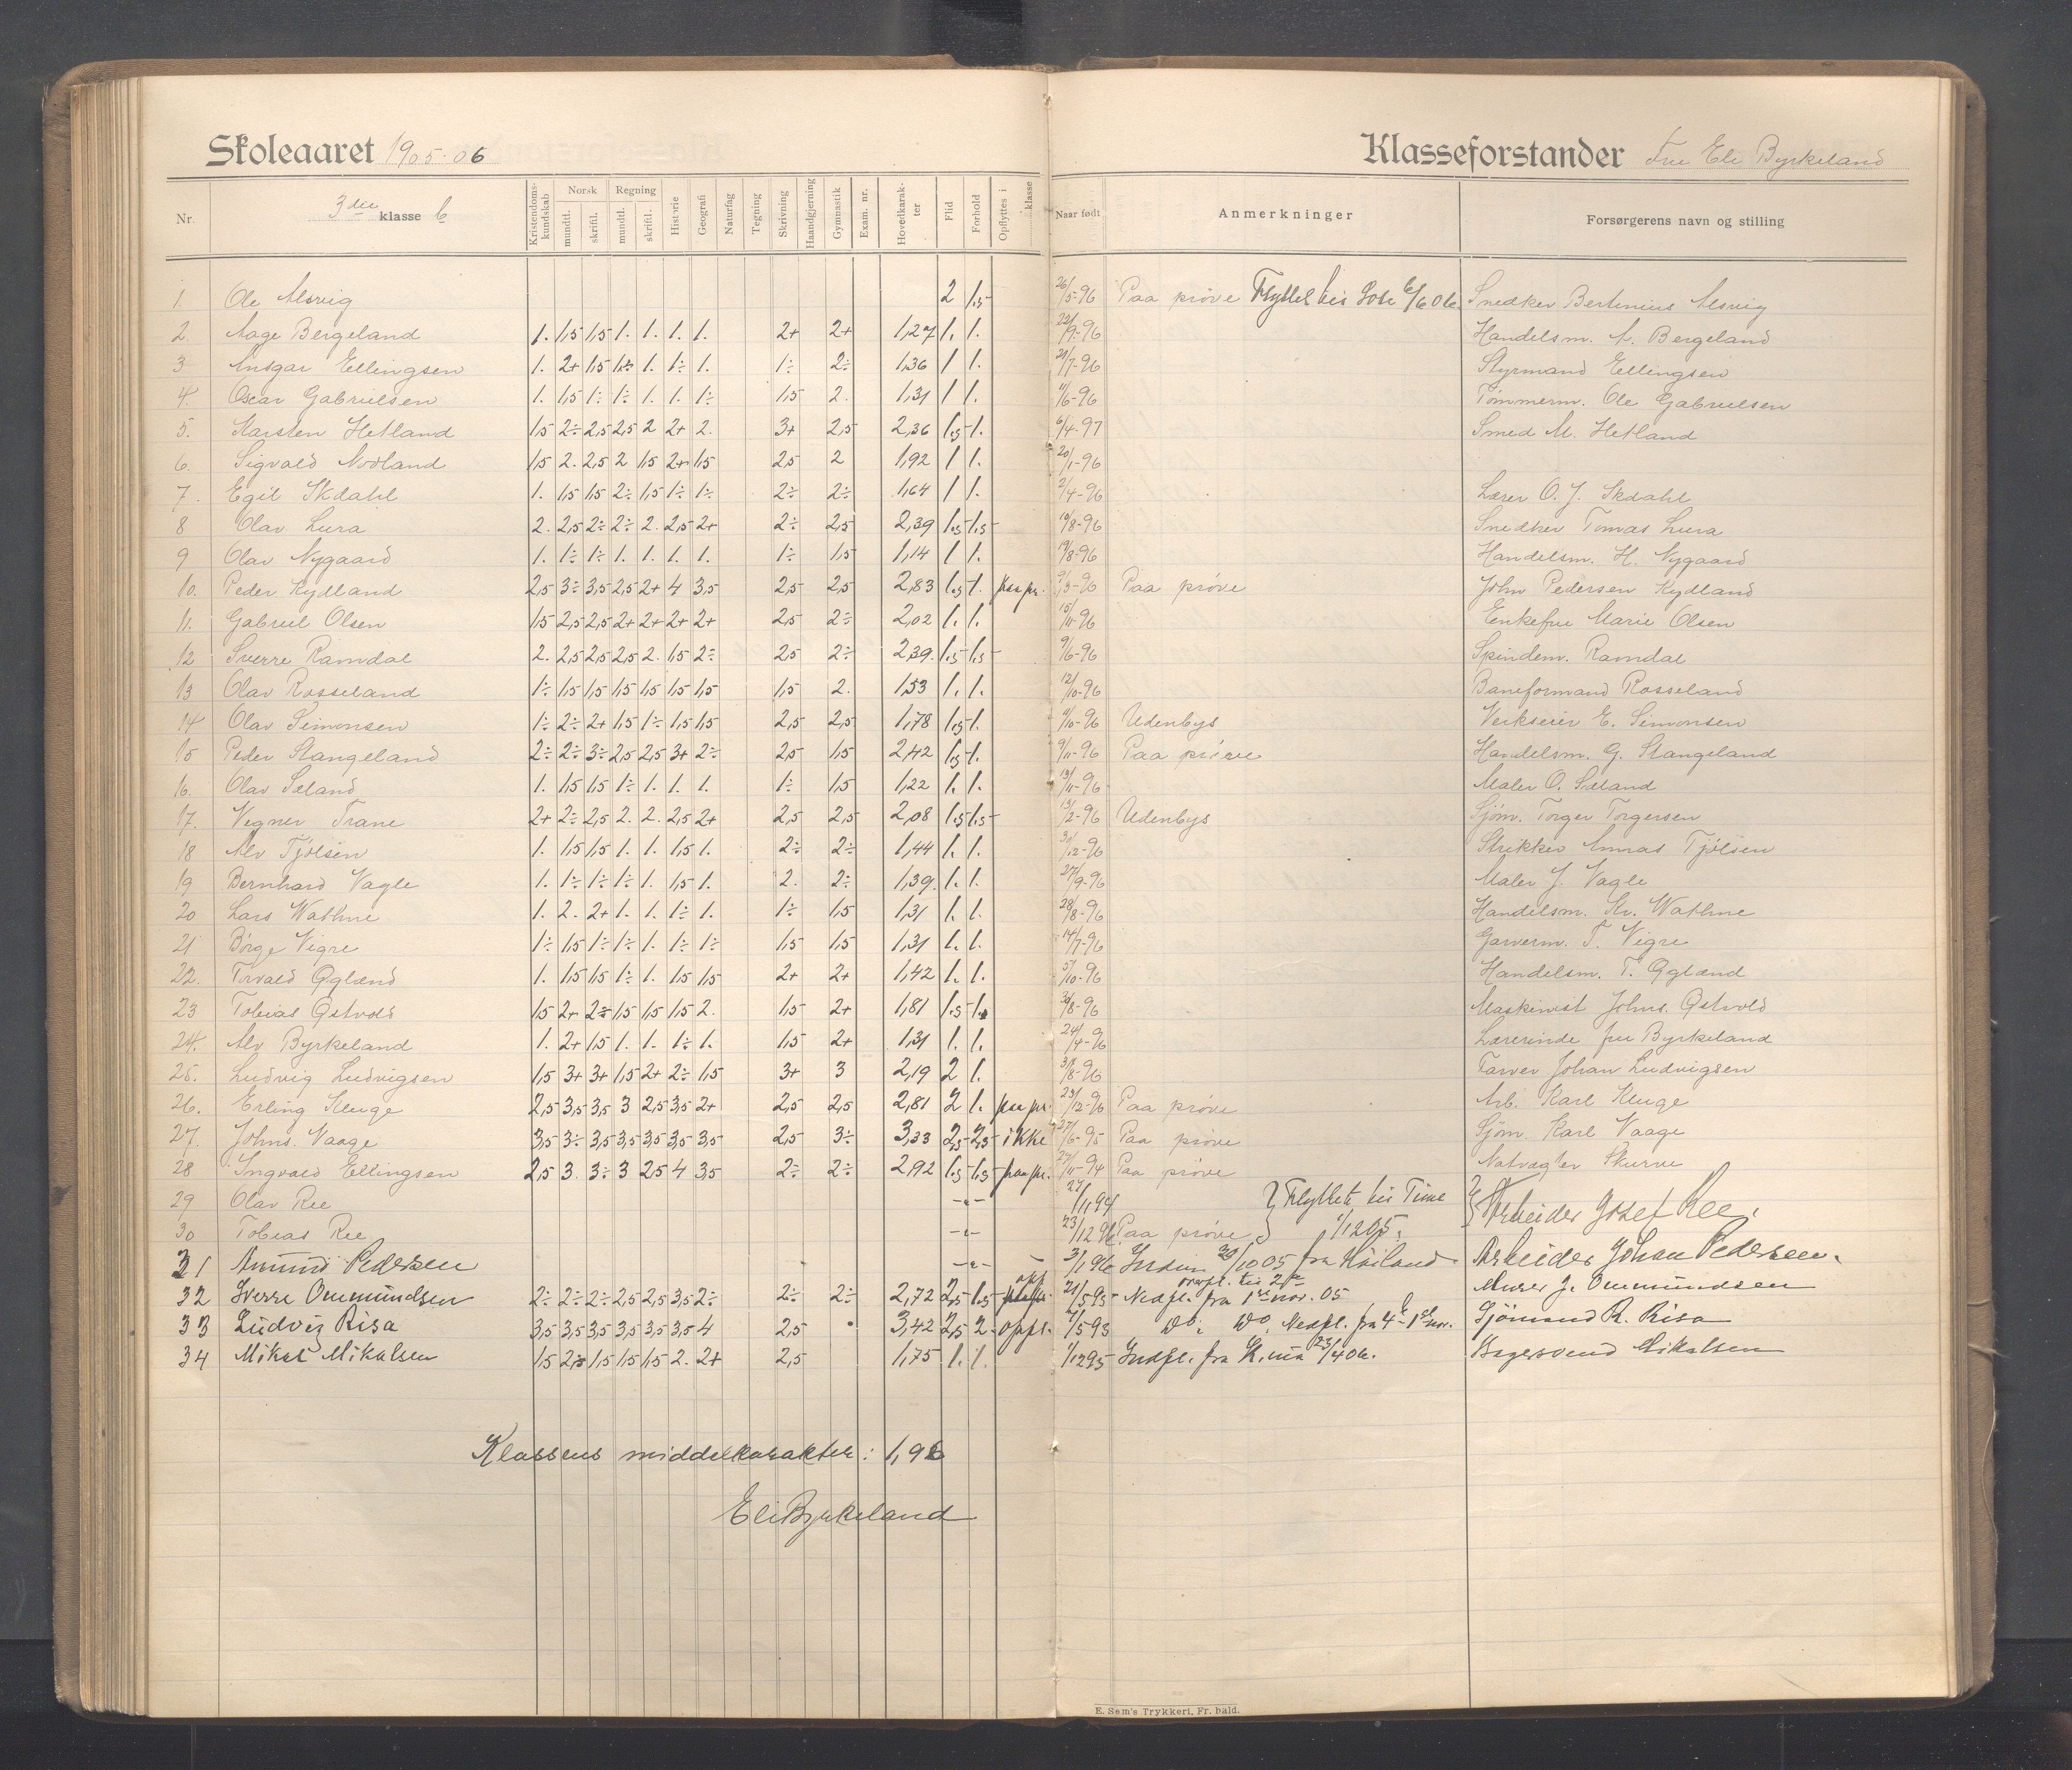 Skoleaaret 1905-06
Klasseforstander Fru Eli Byrkeland
Nr. 3die klasse b Kristendomskundskab Norsk mundtl. skriftl. Regning mundtl. skriftl. Historie Geografi Naturfag Tegning Skrivning Haandgjerning Gymnastik Exam. nr. Hovedkarakter Flid Forhold Opflyttes i klasse Naar født Anmerkninger Forsørgerens navn og stilling
1. Ole Alsvig 2 1,5 26/5-96 Paa prøve Flyttet 6/6 06. Snedker Bertinius Alsvig
2. Aage Bergeland 1. 1,5 1,5 1. 1. 1. 1. 2+ 2+ 1,27 1. 1. 22/9-96 Handelsm. A. Bergeland
3 Ansgar Ellingsen 1. 2+ 1,5 1. 1÷ 1. 1÷ 2÷ 1,36 1 1. 21/7-96 Styrmand Ellingsen
4. Oscar Gabrielsen 1. 1,5 1÷ 1÷ 1. 1. 1÷ 1,5 2. 1,31 1 1. 11/6-96 Tømmerm. Ole Gabrielsen
5. Karsten Hetland 1,5 2÷ 2,5 2,5 2 2+ 2. 3+ 2,5 2,36 1.5 1. 6/4-97 Smed M. Hetland
6. Sigvald Nodland 1,5 2. 2,5 2 1,5 2+ 1,5 2,5 2 1,92 1 1. 20/1-96
7. Egil Skdahl 1. 1,5 1,5 2÷ 1,5 1÷ 1÷ 2÷ 2÷ 1,64 1 1. 2/4-96 Lærer O. J. Skdahl
8 Olav Lura 2. 2,5 2÷ 2÷ 2. 2,5 2+ 2÷ 2,5 2,39 1.5 1.5 10/8-96 Snedker Tomas Lura
9 Olav Nygaard 1. 1÷ 1÷ 1. 1. 1. 1. 1÷ 1,5 1,14 1 1. 19/8-96 Handelsm. H. Nygaard
10. Peder Kydland 2,5 3÷ 3,5 2,5 2+ 4 3,5 2,5 2,5 2,83 1.5 1. paa pr. 9/3-96 Paa prøve John Pedersen Kydland
11. Gabriel Olsen 1,5 2,5 2,5 2+ 2+ 2+ 2+ 2,5 2÷ 2,02 1. 1. 15/11-96 Enkefru Marie Olsen
12 Sverre Ramdal 2. 2,5 2,5 2,5 2. 1,5 2÷ 2,5 2÷ 2,39. 1.5 1.5 9/6-96 Spindem. Ramdal
13 Olav Rosseland 1÷ 1,5 1,5 1,5 1,5 1,5 1,5 1,5 2. 1,53 1. 1. 12/10-96 Baneformand Rosseland
14 Olav Simonsen 1÷ 2÷ 2+ 1,5 1÷ 1,5 1,5 2,5 2,5 1,78 1,5 1. 11/10-96 Udenbys Verkseier E. Simonsen
15 Peder Stangeland 2÷ 2÷ 3÷ 2,5 2,5 3+ 2÷ 2,5 1,5 2,42 1,5 1. 9/11-96 Paa prøve Handelsm. G. Stangeland
16. Olav Sæland 1. 1,5 1,5 1÷ 1. 1. 1. 1÷ 1,5 1,22 1. 1. 13/11-96 Maler O. Sæland
17. Vegner Trane 2+ 2÷ 2,5 2. 2. 2,5 2+ 2,5 2,5 2,08 1.5 1.5 13/2-96 Udenbys Sjøm. Torger Torgersen
18 Alv Tjølsen 1. 1,5 1,5 1. 1. 1,5 1. 2÷ 2÷ 1,44 1. 1. 30/12-96 Strikker Annas Tjølsen
19 Bernhard Vagle 1. 1÷ 1÷ 1÷ 1. 1,5 1. 2. 2÷ 1,39. 1. 1. 27/9-96 Maler J. Vagle
20 Lars Wathne 1. 2. 2+ 1. 1. 1÷ 1. 1÷ 1,5 1,31 1. 1. 28/8-96 Handelsm. Kr. Wathne
21 Børge Vigre 1÷ 1,5 1÷ 1÷ 1. 1÷ 1÷ 1,5 1,5 1,31 1. 1. 14/7-96 Garverm. T. Vigre
22. Torvald Øglænd 1. 1,5 1,5 1÷ 1. 1,5 1,5 2+ 2+ 1,42 1. 1. 5/10-96 Handelsm. T. Øglænd
23 Tobias Østvold 1,5 2+ 2÷ 1,5 1,5 1,5 2. 1,5 2+ 1,81 1.5 1. 30/8-96 Maskinist Johns. Østvold
24. Alv Byrkeland 1. 2+ 1,5 1. 1. 1÷ 1. 1,5 2+ 1,31 1. 1. 24/4-96 Lærerinde fru Byrkeland
25. Ludvig Ludvigsen 1,5 3+ 3+ 1,5 2+ 2÷ 1,5 3+ 3 2,19 2 1. 31/8-96 Farver Johan Ludvigsen
26. Erling Kluge 2,5 3,5 3,5 3 2,5 3,5 2+ 2,5 2,5 2,81 2 1. paa pr. 23/12-96 Paa prøve Arb. Karl Kluge
27. Johns. Vaage 3,5 3÷ 3,5 3,5 3,5 3,5 3,5 2,5 3÷ 3,33 2,5 2,5 ikke 27/6-95 Paa prøve Sjøm. Karl Vaage
28 Ingvald Ellingsen 2,5 3. 3÷ 3 2,5 4 3,5 2÷ 2÷ 2,92 1.5 1.5 paa pr. 27/11-94 Paa prøve Natvægter Skurve
29 Olav Ree -"- 27/11 94 } Flyttet til Time Arbeider Josef Ree.
30 Tobias Ree -"- 23/12 96 Paa prøve 1/12 05.
31 Amund Pedersen -"- - 3/1 96 Indm. 30/10 05 fra Høiland Arbeider Johan Pedersen.
32 Sverre Ommundsen 2÷ 2÷ 2÷ 2,5 2,5 3,5 2÷ 2÷ 2÷ 2,72 2,5 1.5 21/5 95 Nedfl. fra 1ste nov. 05 Murer J. Ommundsen
33 Ludvig Risa 3,5 3,5 3,5 3,5 3,5 3,5 4 2,5 3,42 2,5 2 opfl. 7/5 93 Do. Do. Nedfl. fra 4de 1ste nov. Sjømand R. Risa
34 Mikal Mikalsen 1,5 2÷ 1,5 1,5 1,5 2. 2+ 2,5 1,75 1. 1. 1/12 95 Indfl. fra Kina 23/4 06. Bagersvend Mikalsen
Klassens middelkarakter: 1,96
Eli Byrkeland
E. Sem's Trykkeri, Fr. hald.